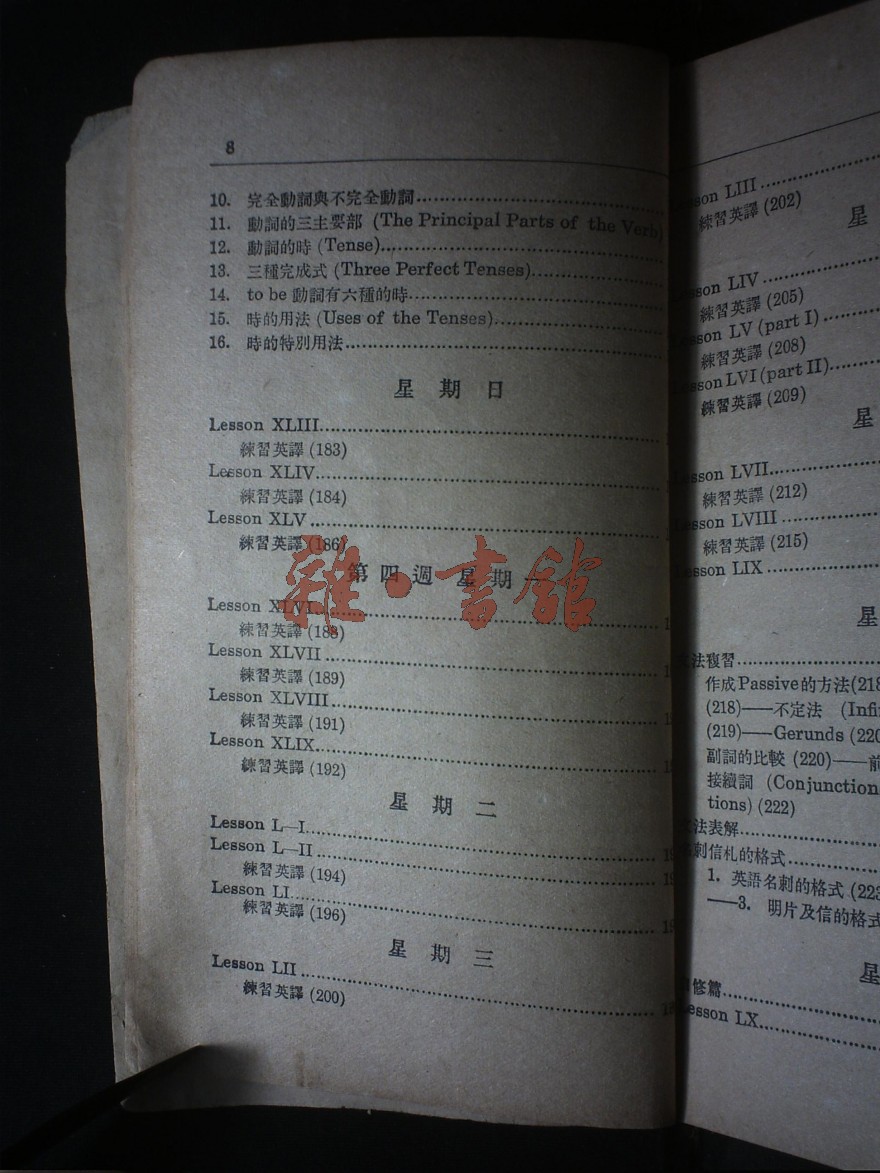 8
10. 完全動詞與不完全動詞
11. 動詞的三主要部 (The Principal Parts of the Verb)
12. 動詞的時 (Tense)
13. 三種完成式 (Three Perfect Tenses)
14. to be 動詞有六種的時
15. 時的用法 (Uses of the Tenses)
16. 時的特別用法
星期日
Lesson XLIII
練習英譯 (183)
Lesson XLIV
練習英譯 (184)
Lesson XLV
練習英譯 (186)
第四週 星期一
Lesson XLVI
練習英譯 (188)
Lesson XLVII
練習英譯 (189)
Lesson XLVIII
練習英譯 (191)
Lesson XLIX
練習英譯 (192)
星期二
Lesson L—I
Lesson L—II
練習英譯 (194)
Lesson LI
練習英譯 (196)
星期三
Lesson LII
練習英譯 (200)
雜·書館
son LIII
練習英譯 (202)
星
son LIV
練習英譯 (205)
son LV (part I)
練習英譯 (208)
esson LVI (part II)
練習英譯 (209)
星
esson LVII
練習英譯 (212)
esson LVIII
練習英譯 (215)
esson LIX
星
法複習
作成Passive的方法(218
(218)——不定法 (Infi
(219)——Gerunds (220
副詞的比較 (220)——前
接續詞 (Conjunction
tions) (222)
法表解
刺信札的格式
1. 英語名刺的格式 (223
——3. 明片及信的格式
星
修篇
esson LX